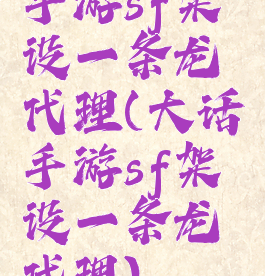 手游sf架
设一条龙
代理(大话
手游sf架
设一条龙
代理)